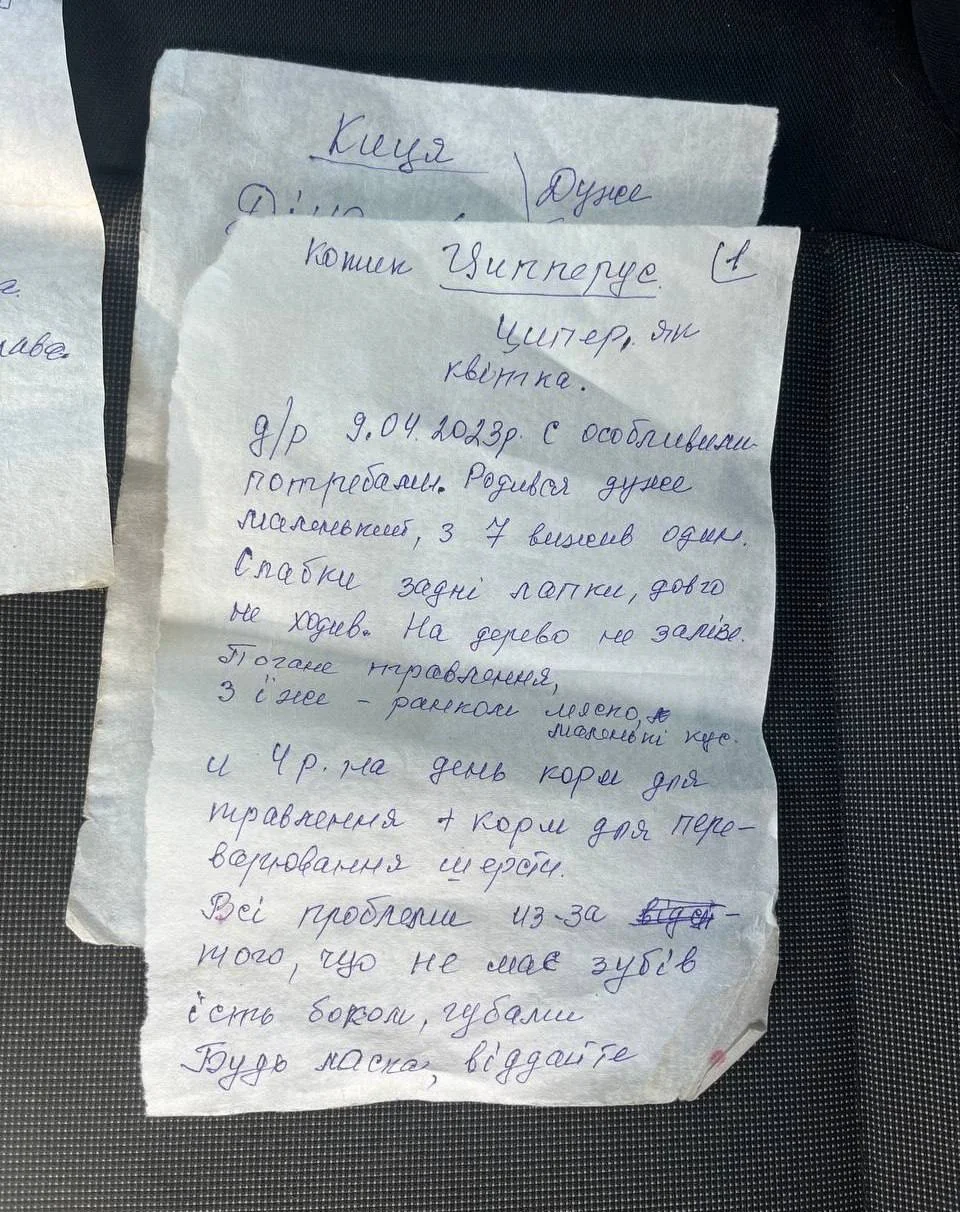 Киця
Дуже
г.
кошик Ципперус. (1
Ципер, як
квітка.
д/р 9.04.2023р. С особливими
потребами. Родився дуже
маленький, з 7 вижив один.
Слабки задні лапки, довго
не ходив. На дерево не залізе.
Погане травлення,
З їжи - ранком мяско,
маленькі кус.
и 4р. на день корм для
травлення + корм для пере-
варювання шерсти.
Всі проблеми из-за
того, що не має зубів
їсть боком, губами
Будь ласка, віддайте